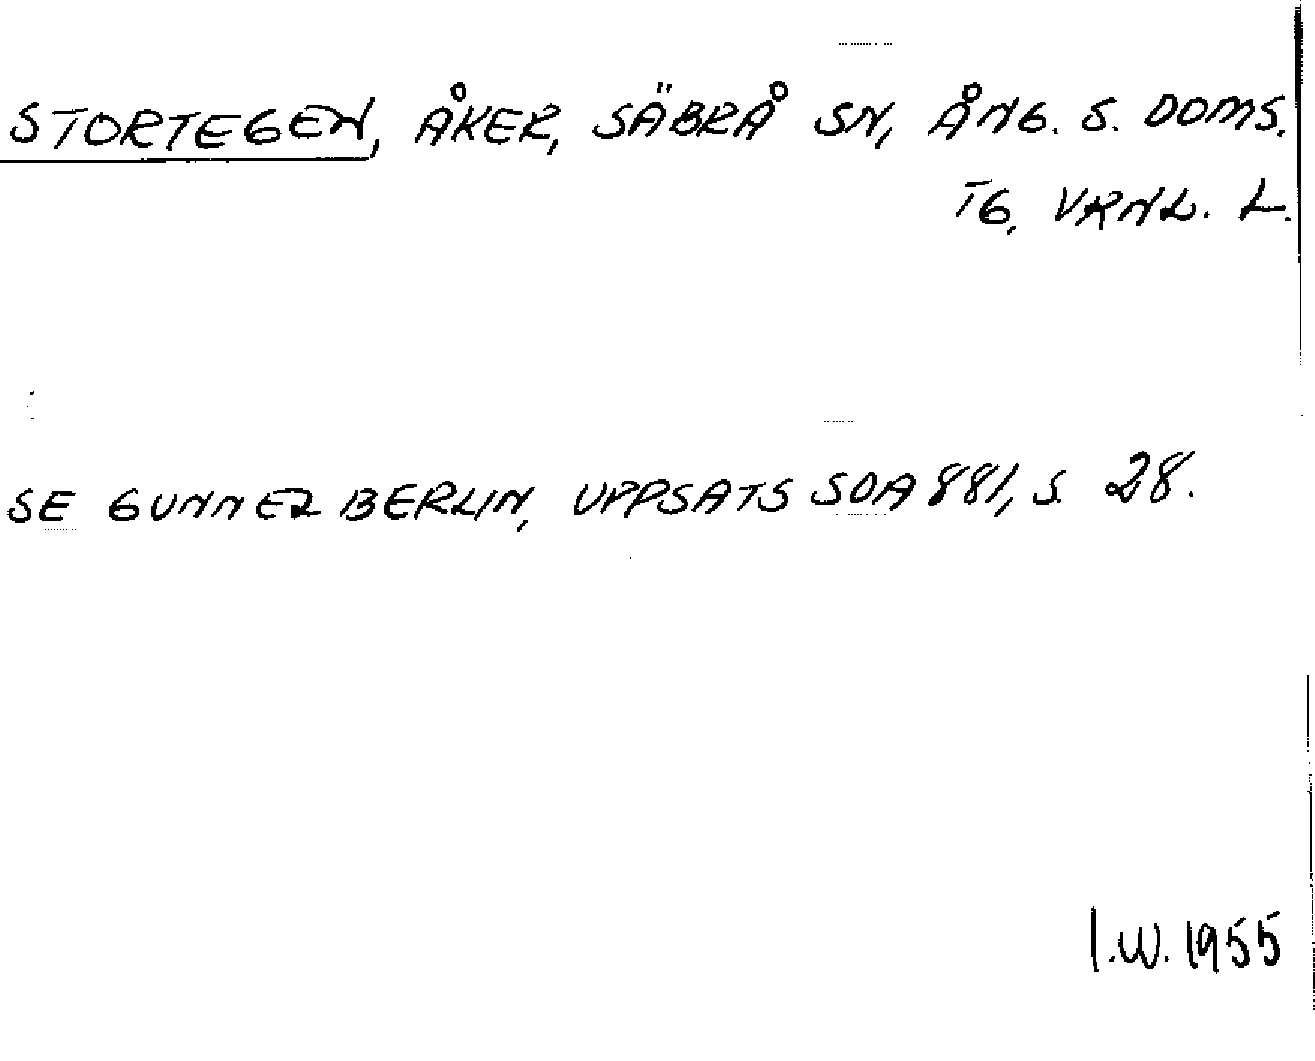 STORTEGEN, ÅKER, SÄBRÅ SN, ÅNG. S. DOMS.
TG, VRNL. L.
SE GUNNER BERLIN, UPPSATS SOA 881, S. 28.
I.W. 1955